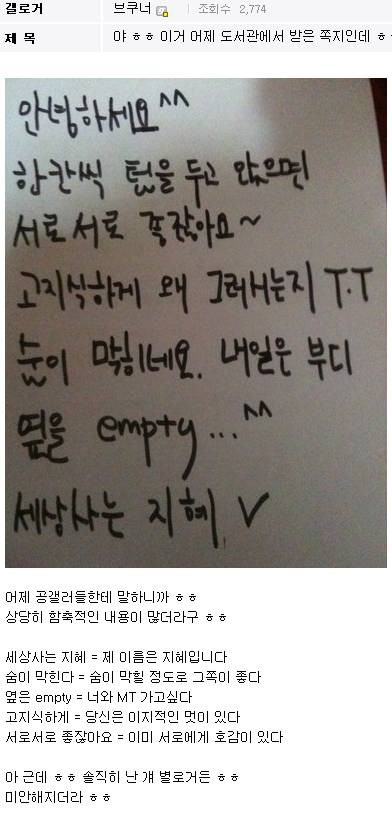 갤로거 브쿠너 조회수 2,774
제 목 야 ㅎㅎ 이거 어제 도서관에서 받은 쪽지인데 ㅎ
안녕하세요^^
한칸씩 텀을 두고 앉으면
서로서로 좋잖아요~
고지식하게 왜 그러시는지 T.T
숨이 막히네요. 내일은 부디
옆을 empty...^^
세상사는 지혜 V
어제 공갤러들한테 말하니까 ㅎㅎ
상당히 함축적인 내용이 많더라구 ㅎㅎ
세상사는 지혜 = 제 이름은 지혜입니다
숨이 막힌다 = 숨이 막힐 정도로 그쪽이 좋다
옆은 empty = 너와 MT 가고싶다
고지식하게 = 당신은 이지적인 멋이 있다
서로서로 좋잖아요 = 이미 서로에게 호감이 있다
아 근데 ㅎㅎ 솔직히 난 걔 별로거든 ㅎㅎ
미안해지더라 ㅎㅎ